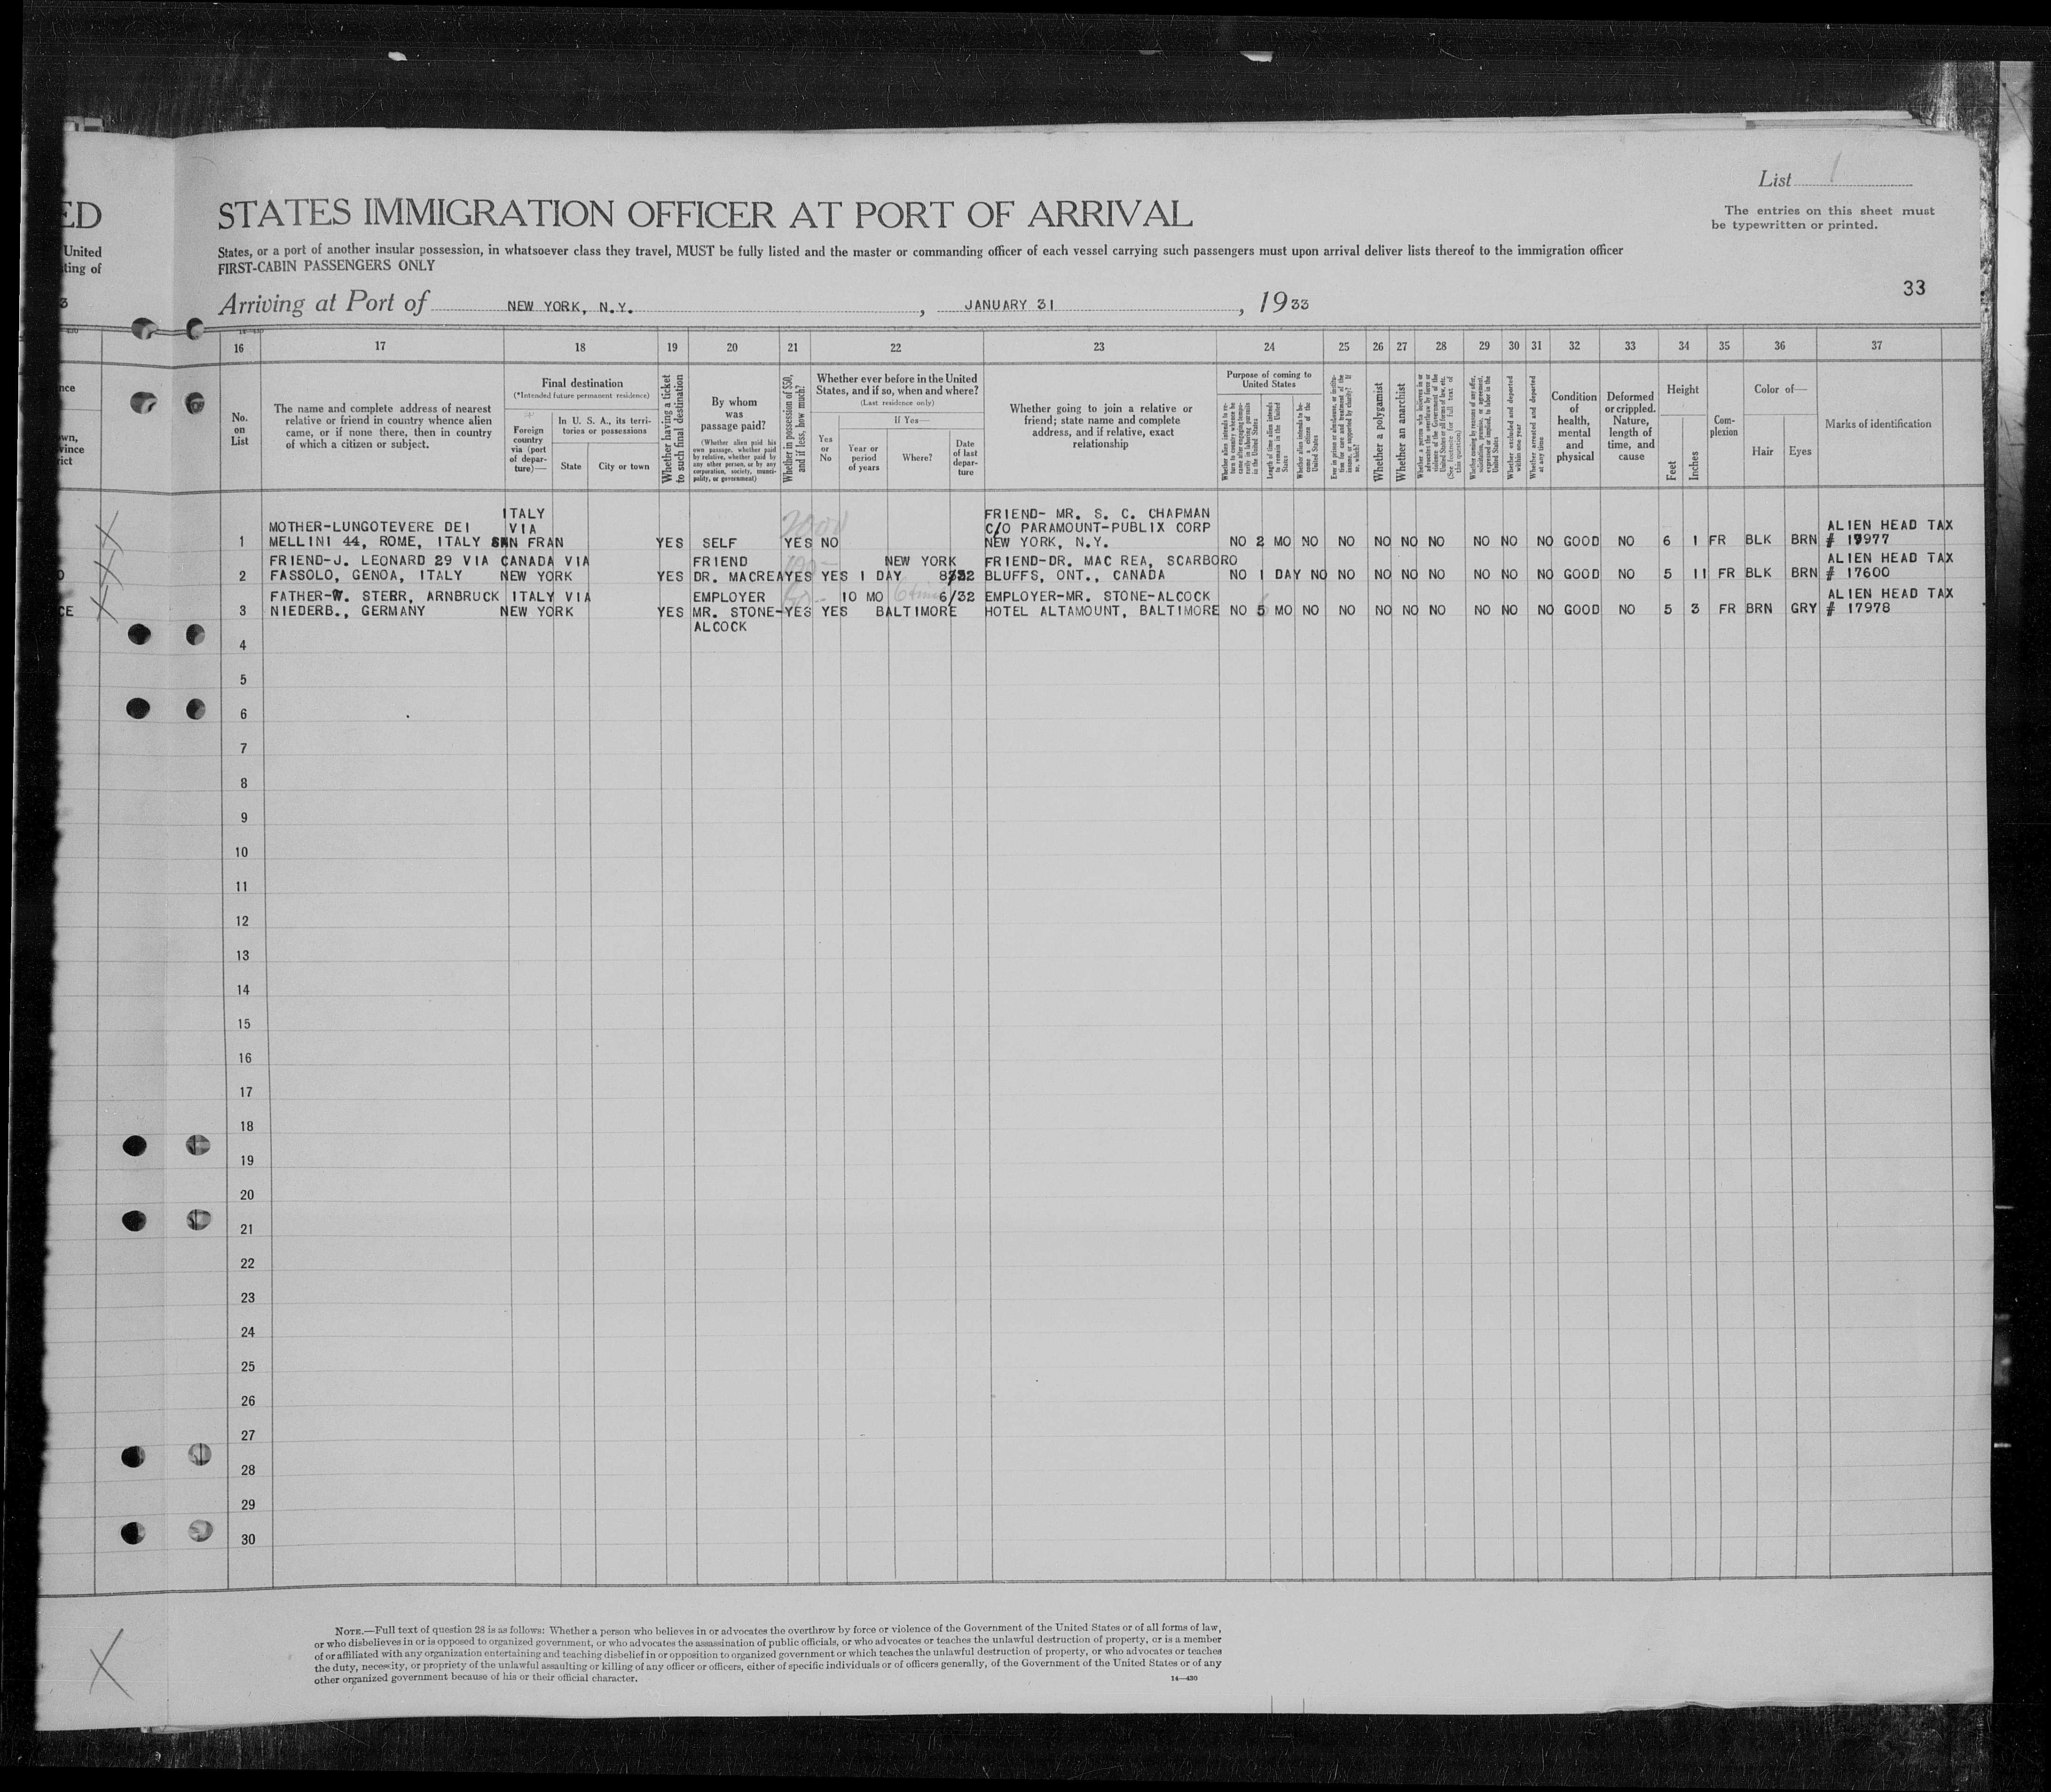 ED
United
ting of
3
List 1
The entries on this sheet must
be typewritten or printed.
STATES IMMIGRATION OFFICER AT PORT OF ARRIVAL
States, or a port of another insular possession, in whatsoever class they travel, MUST be fully listed and the master or commanding officer of each vessel carrying such passengers must upon arrival deliver lists thereof to the immigration officer
FIRST-CABIN PASSENGERS ONLY
33
Arriving at Port of NEW YORK, N.Y. , JANUARY 31 , 1933
16 17 18 19 20 21 22 23 24 25 26 27 28 29 30 31 32 33 34 35 36 37
No.
on
List
The name and complete address of nearest
relative or friend in country whence alien
came, or if none there, then in country
of which a citizen or subject.
Final destination
(*Intended future permanent residence)
Foreign
country
via (port
of depar-
ture)—
In U. S. A., its terri-
tories or possessions
State
City or town
Whether having a ticket
to such final destination
By whom
was
passage paid?
(Whether alien paid his
own passage, whether paid
by relative, whether paid by
any other person, or by any
corporation, society, munici-
pality, or government)
Whether in possession of $50,
and if less, how much?
Whether ever before in the United
States, and if so, when and where?
(Last residence only)
If Yes—
Yes
or
No
Year or
period
of years
Where?
Date
of last
depar-
ture
Whether going to join a relative or
friend; state name and complete
address, and if relative, exact
relationship
Purpose of coming to
United States
Whether alien intends to re-
turn to country whence he
came after engaging tempo-
rarily in laboring pursuits
in the United States
Length of time alien intends
to remain in the United
States
Whether alien intends to be-
come a citizen of the
United States
Ever in prison or almshouse, or institu-
tion for care and treatment of the
insane, or supported by charity? If
so, which?
Whether a polygamist
Whether an anarchist
Whether a person who believes in or
advocates the overthrow by force or
violence of the Government of the
United States or all forms of law, etc.
(See footnote for full text of
this question)
Whether coming by reason of any offer,
solicitation, promise, or agreement,
expressed or implied, to labor in the
United States
Whether excluded and deported
within one year
Whether arrested and deported
at any time
Condition
of
health,
mental
and
physical
Deformed
or crippled.
Nature,
length of
time, and
cause
Height
Feet
Inches
Com-
plexion
Color of—
Hair
Eyes
Marks of identification
1 MOTHER-LUNGOTEVERE DEI
MELLINI 44, ROME, ITALY
ITALY
VIA
SAN FRAN
YES SELF YES NO
FRIEND- MR. S. C. CHAPMAN
C/O PARAMOUNT-PUBLIX CORP
NEW YORK, N.Y.
NO 2 MO NO NO NO NO NO NO NO NO GOOD NO 6 1 FR BLK BRN
ALIEN HEAD TAX
# 17977
2 FRIEND-J. LEONARD 29 VIA
FASSOLO, GENOA, ITALY
CANADA VIA
NEW YORK
YES
FRIEND
DR. MACREA
YES YES 1 DAY NEW YORK
FRIEND-DR. MAC REA, SCARBORO
BLUFFS, ONT., CANADA
NO 1 DAY NO NO NO NO NO NO NO NO GOOD NO 5 11 FR BLK BRN
ALIEN HEAD TAX
# 17600
3 FATHER-W. STERR, ARNBRUCK
NIEDERB., GERMANY
ITALY VIA
NEW YORK
YES
EMPLOYER
MR. STONE-
ALCOCK
YES YES 10 MO BALTIMORE 6/32
EMPLOYER-MR. STONE-ALCOCK
HOTEL ALTAMOUNT, BALTIMORE
NO 5 MO NO NO NO NO NO NO NO NO GOOD NO 5 3 FR BRN GRY
ALIEN HEAD TAX
# 17978
4
5
6
7
8
9
10
11
12
13
14
15
16
17
18
19
20
21
22
23
24
25
26
27
28
29
30
NOTE.—Full text of question 28 is as follows: Whether a person who believes in or advocates the overthrow by force or violence of the Government of the United States or of all forms of law,
or who disbelieves in or is opposed to organized government, or who advocates the assassination of public officials, or who advocates or teaches the unlawful destruction of property, or is a member
of or affiliated with any organization entertaining and teaching disbelief in or opposition to organized government or which teaches the unlawful destruction of property, or who advocates or teaches
the duty, necessity, or propriety of the unlawful assaulting or killing of any officer or officers, either of specific individuals or of officers generally, of the Government of the United States or of any
other organized government because of his or their official character.
14—430